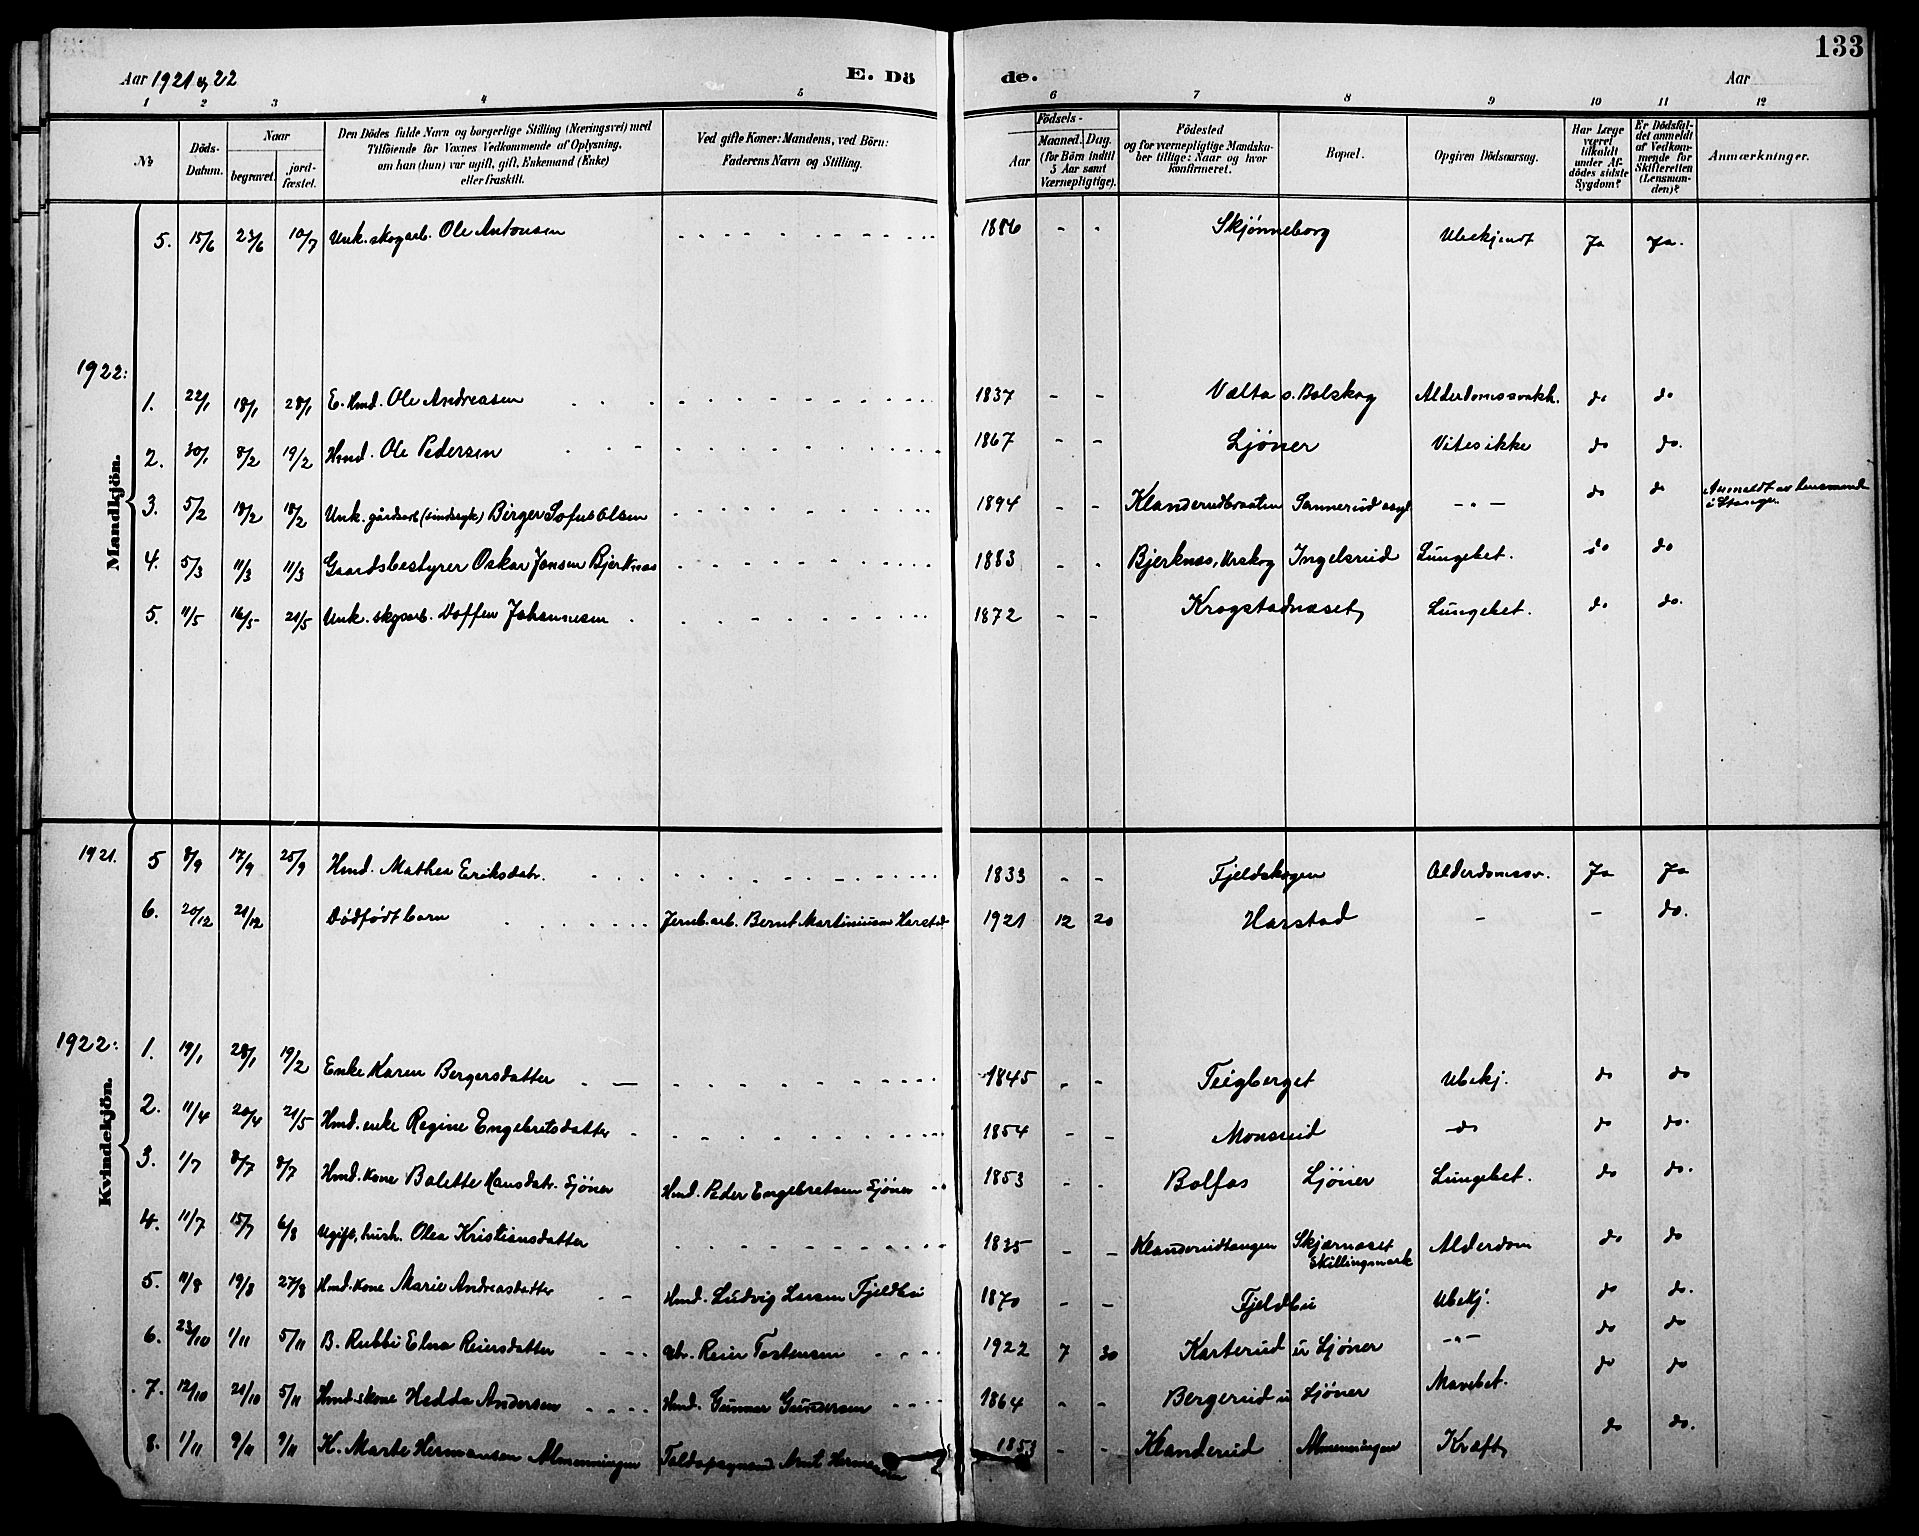 Aar 1921 og 22 E. Dö de. Aar 133
1 2 3 4 5 6 7 8 9 10 11 12
No
Döds-Datum.
Naar
begravet.
jordfæstet.
Den Dödes fulde Navn og borgerlige Stilling (Næringsvei) med
Tilföiende for Voxnes Vedkommende af Oplysning,
om han (hun) var ugift, gift, Enkemand (Enke)
eller fraskilt.
Ved gifte Koner: Mandens, ved Börn:
Faderens Navn og Stilling.
Födsels-
Aar
Maaned.
Dag.
(for Börn indtil
5 Aar samt
Værnepligtige).
Födested
og for værnepligtige Mandskaber tillige: Naar og hvor
konfirmeret.
Bopæl.
Opgiven Dödsaarsag.
Har Læge
været
tilkaldt
under Afdödes sidste
Sygdom?
Er Dödsfaldet anmeldt
af Vedkommende for
Skifteretten
(Lensmanden)?
Anmærkninger.
Mandkjön.
5. 15/6 23/6 10/7 Unk. skogarb. Ole Antonsen 1886 - - Skjønneborg Ubekjendt Ja Ja.
1922:
1. 22/1 18/1 28/1 E. Hmd. Ole Andreasen 1837 - - Vælta s. Bolskog Alderdomssvakh. do do
2. 30/1 8/2 19/2 Hmd. Ole Pedersen 1867 - - Ljöner Vites ikke do do.
3. 5/2 18/2 18/2 Unk. gårdsarb (sindssyk) Birger Sofus Olsen 1894 - - Klanderudbraaten Sannerud asyl - " - do do Anmeldt av lensmand i Stange
4. 5/3 11/3 11/3 Gaardsbestyrer Oskar Jansen Bjerknæs 1883 - - Bjerknæs, Urskog Ingelsrud Lungebet. do do
5. 11/5 16/5 21/5 Unk. skogarb. Doffen Johannesen 1872 - - Krogstadnæset Lungebet. do do.
Kvindekjön.
1921. 5 8/9 17/9 25/9 Hmd. Mathea Eriksdatr. 1833 - - Fjeldskogen Alderdomssv. Ja Ja
6. 20/12 21/12 Dödfödt barn Jernb. arb. Bernt Martiniusen Harstad 1921 12 20 Harstad - - do.
1922:
1. 19/1 28/1 19/2 Enke Karen Bergersdatter 1845 - - Teigberget Ubekj. do do
2. 11/4 20/4 21/5 Hmd. enke Regine Engebretsdatter 1854 - - Monsrud do do do.
3. 1/7 8/7 8/7 Hmd. kone Bolette Hansdatr. Sjöner Hmd. Peder Engebretsen Sjöner 1853 - - Bolfos Ljöner Lungebet. do do.
4. 11/7 15/7 6/8 Ugift, hush. Olea Kristiansdatter 1835 - - Klanderudtangen Skjærnæset Skillingmark Alderdom do do
5. 11/8 19/8 27/8 Hmd. kone Marie Andreasdatter Hmd. Ludvig Larsen Fjeldbu 1870 - - Fjeldbu Ubekj. do do.
6. 23/10 1/11 5/11 B. Rubbi Elna Reiersdatter arb. Reier Torstensen 1922 7 30 Karterud u Ljöner - " - do do
7. 12/10 21/10 5/11 Hmd. kone Hedda Andersen Hmd. Gunnar Gundersen 1864 - - Bergerud u Ljöner Mavebet. do do
8. 1/11 9/11 9/11 K. Marte Hermansen Almenningen Arnt Hermansen 1853 - - Klanderud Almenningen Kræft do do.